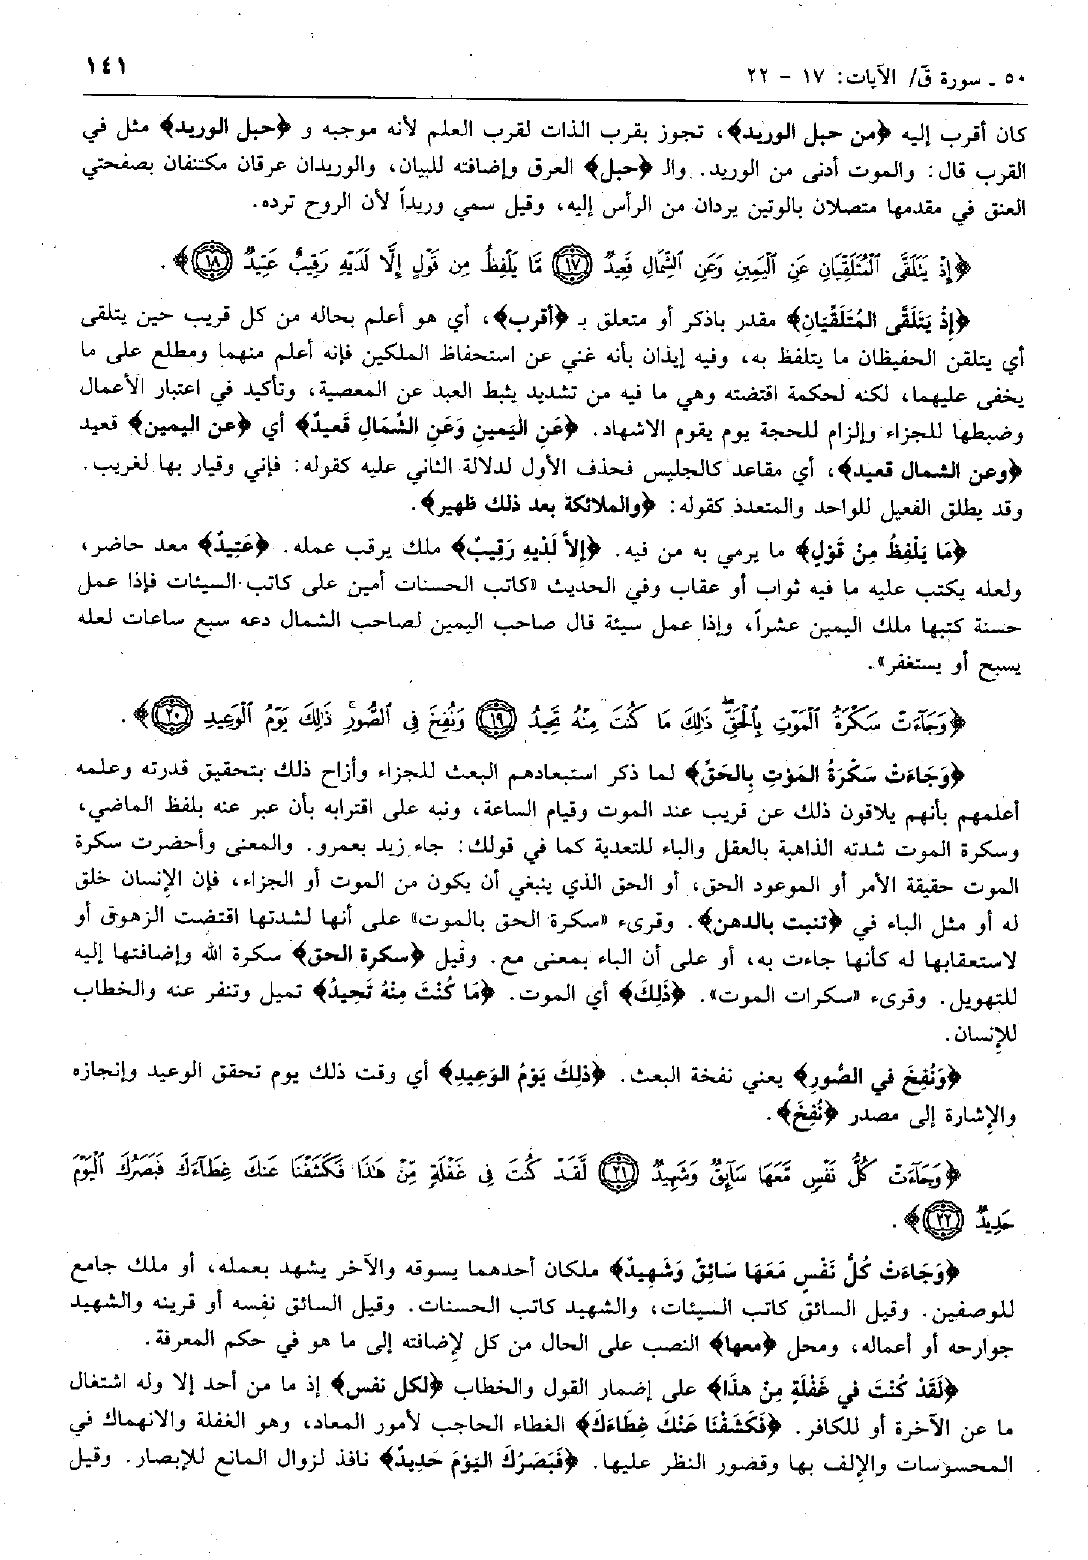 ٥٠ ـ سورة قَ/ الآيات: ١٧ - ٢٢
١٤١
كان أقرب إليه ﴿من حبل الوريد﴾، تجوز بقرب الذات لقرب العلم لأنه موجبه و ﴿حبل الوريد﴾ مثل في
القرب قال: والموت أدنى من الوريد. والـ ﴿حبل﴾ العرق وإضافته للبيان، والوريدان عرقان مكتنفان بصفحتي
العنق في مقدمها متصلان بالوتين يردان من الرأس إليه، وقيل سمي وريداً لأن الروح ترده.
﴿إِذْ يَتَلَقَّى ٱلْمُتَلَقِّيَانِ عَنِ ٱلْيَمِينِ وَعَنِ ٱلشِّمَالِ قَعِيدٌ ١٧ مَّا يَلْفِظُ مِن قَوْلٍ إِلَّا لَدَيْهِ رَقِيبٌ عَتِيدٌ ١٨﴾.
﴿إِذْ يَتَلَقَّى المُتَلَقِّيَان﴾ مقدر باذكر أو متعلق بـ ﴿أقرب﴾، أي هو أعلم بحاله من كل قريب حين يتلقى
أي يتلقن الحفيظان ما يتلفظ به، وفيه إيذان بأنه غني عن استحفاظ الملكين فإنه أعلم منهما ومطلع على ما
يخفى عليهما، لكنه لحكمة اقتضته وهي ما فيه من تشديد يثبط العبد عن المعصية، وتأكيد في اعتبار الأعمال
وضبطها للجزاء وإلزام للحجة يوم يقوم الاشهاد. ﴿عَنِ اليَمِينِ وَعَنِ الشِّمَالِ قَعيدٌ﴾ أي ﴿عن اليمين﴾ قعيد
﴿وعن الشمال قعيد﴾، أي مقاعد كالجليس فحذف الأول لدلالة الثاني عليه كقوله: فإني وقيار بها لغريب.
وقد يطلق الفعيل للواحد والمتعدد كقوله: ﴿والملائكة بعد ذلك ظهير﴾.
﴿مَا يَلْفِظُ مِنْ قَوْلٍ﴾ ما يرمي به من فيه. ﴿إِلاَّ لَدَيْهِ رَقِيبٌ﴾ ملك يرقب عمله. ﴿عَتِيدٌ﴾ معد حاضر،
ولعله يكتب عليه ما فيه ثواب أو عقاب وفي الحديث «كاتب الحسنات أمين على كاتب السيئات فإذا عمل
حسنة كتبها ملك اليمين عشراً، وإذا عمل سيئة قال صاحب اليمين لصاحب الشمال دعه سبع ساعات لعله
يسبح أو يستغفر».
﴿وَجَآءَتْ سَكْرَةُ ٱلْمَوْتِ بِٱلْحَقِّۖ ذَٰلِكَ مَا كُنتَ مِنْهُ تَحِيدُ ١٩ وَنُفِخَ فِى ٱلصُّورِۚ ذَٰلِكَ يَوْمُ ٱلْوَعِيدِ ٢٠﴾.
﴿وَجَاءَتْ سَكْرَةُ المَوْتِ بِالحَقِّ﴾ لما ذكر استبعادهم البعث للجزاء وأزاح ذلك بتحقيق قدرته وعلمه
أعلمهم بأنهم يلاقون ذلك عن قريب عند الموت وقيام الساعة، ونبه على اقترابه بأن عبر عنه بلفظ الماضي،
وسكرة الموت شدته الذاهبة بالعقل والباء للتعدية كما في قولك: جاء زيد بعمرو. والمعنى وأحضرت سكرة
الموت حقيقة الأمر أو الموعود الحق، أو الحق الذي ينبغي أن يكون من الموت أو الجزاء، فإن الإنسان خلق
له أو مثل الباء في ﴿تنبت بالدهن﴾. وقرىء «سكرة الحق بالموت» على أنها لشدتها اقتضت الزهوق أو
لاستعقابها له كأنها جاءت به، أو على أن الباء بمعنى مع. وقيل ﴿سكرة الحق﴾ سكرة الله وإضافتها إليه
للتهويل. وقرىء «سكرات الموت». ﴿ذَلِكَ﴾ أي الموت. ﴿مَا كُنْتَ مِنْهُ تَحِيدُ﴾ تميل وتنفر عنه والخطاب
للإِنسان.
﴿وَنُفِخَ في الصُّورِ﴾ يعني نفخة البعث. ﴿ذلِكَ يَوْمُ الوَعِيد﴾ أي وقت ذلك يوم تحقق الوعيد وإنجازه
والإِشارة إلى مصدر ﴿نُفِخَ﴾.
﴿وَجَآءَتْ كُلُّ نَفْسٍ مَّعَهَا سَآئِقٌ وَشَهِيدٌ ٢١ لَّقَدْ كُنتَ فِى غَفْلَةٍ مِّنْ هَٰذَا فَكَشَفْنَا عَنكَ غِطَآءَكَ فَبَصَرُكَ ٱلْيَوْمَ
حَدِيدٌ ٢٢﴾.
﴿وَجَاءَتْ كُلُّ نَفْسٍ مَعَهَا سَائِقٌ وَشَهِيدٌ﴾ ملكان أحدهما يسوقه والآخر يشهد بعمله، أو ملك جامع
للوصفين. وقيل السائق كاتب السيئات، والشهيد كاتب الحسنات. وقيل السائق نفسه أو قرينه والشهيد
جوارحه أو أعماله، ومحل ﴿معها﴾ النصب على الحال من كل لإِضافته إلى ما هو في حكم المعرفة.
﴿لَقَدْ كُنْتَ في غَفْلَةٍ مِنْ هذَا﴾ على إضمار القول والخطاب ﴿لكل نفس﴾ إذ ما من أحد إلا وله اشتغال
ما عن الآخرة أو للكافر. ﴿فَكَشَفْنَا عَنْكَ غِطَاءَكَ﴾ الغطاء الحاجب لأمور المعاد، وهو الغفلة والانهماك في
المحسوسات والإِلف بها وقصور النظر عليها. ﴿فَبَصَرُكَ اليَوْمَ حَدِيدٌ﴾ نافذ لزوال المانع للإِبصار. وقيل